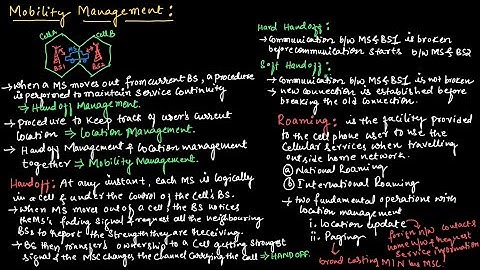 Mobility Management:
Cell A
Cell B
MS
BS1
BS2
→ when a MS moves out from current BS, a procedure
is performed to maintain service continuity
⇒ Handoff Management.
→ procedure to keep track of user's current
location ⇒ Location Management.
→ Handoff Management & location management
together ⇒ Mobility Management.
Handoff: At any instant, each MS is logically
in a cell & under the control of the cell's BS.
→ when MS moves out of a cell, the BS notices
the MS's fading signal & request all the neighbouring
BSs to report the strength they are receiving.
→ BS then transfers ownership to a cell getting strongest
signal & the MSC changes the channel carrying the call ⇒ HANDOFF.
Hard Handoff:
→ communication b/w MS & BS1 is broken
before communication starts b/w MS & BS2
Soft Handoff:
→ Communication b/w MS & BS1 is not broken
→ new connection is established before
breaking the old connection.
Roaming: is the facility provided
to the cell phone user to use the
cellular services when travelling
outside home network.
(a) National Roaming
(b) International Roaming
→ two fundamental operations with
location management
i. location update
ii. Paging
foreign n/w contacts
home n/w & request
service information
broad casting MIN by MSC.